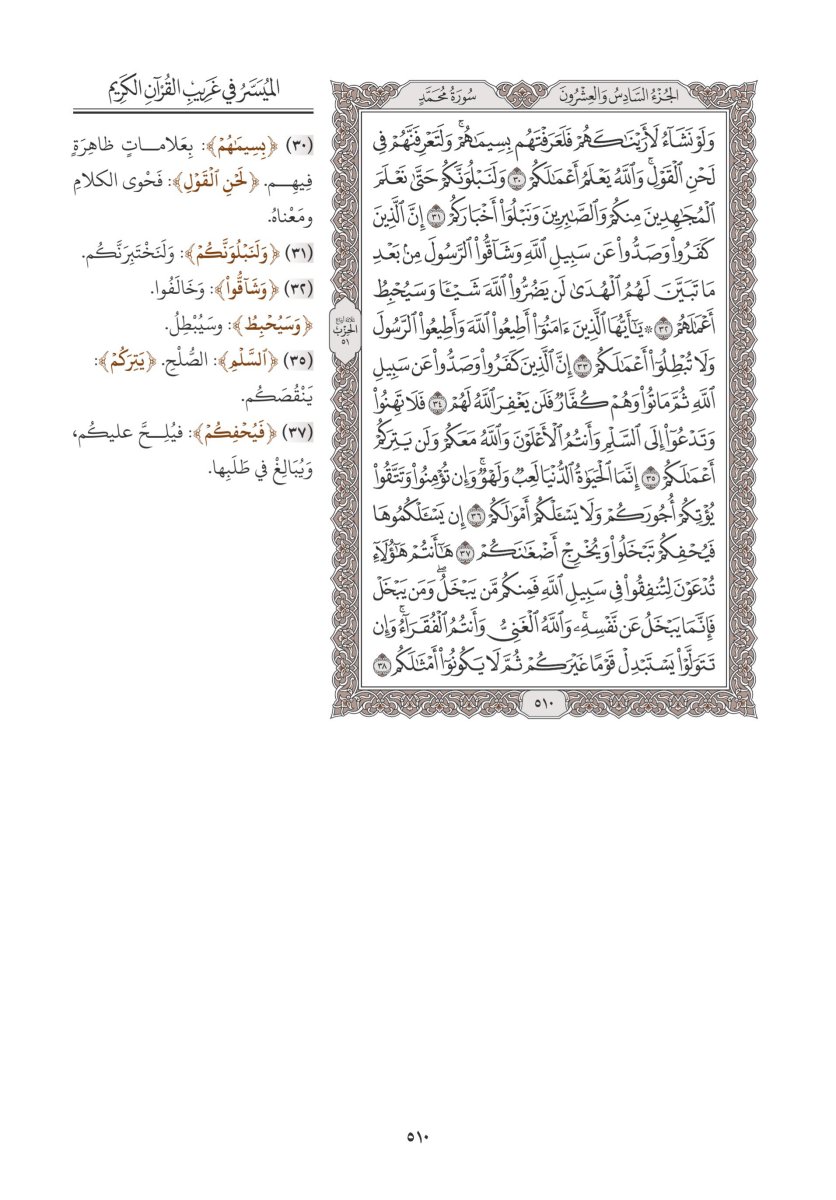 الجُزْءُ السَّادِسُ وَالعِشْرُونَ
سُورَةُ مُحَمَّدٍ
وَلَوۡ نَشَآءُ لَأَرَيۡنَٰكَهُمۡ فَلَعَرَفۡتَهُم بِسِيمَٰهُمۡۚ وَلَتَعۡرِفَنَّهُمۡ فِي
لَحۡنِ ٱلۡقَوۡلِۚ وَٱللَّهُ يَعۡلَمُ أَعۡمَٰلَكُمۡ ٣٠ وَلَنَبۡلُوَنَّكُمۡ حَتَّىٰ نَعۡلَمَ
ٱلۡمُجَٰهِدِينَ مِنكُمۡ وَٱلصَّٰبِرِينَ وَنَبۡلُوَاْ أَخۡبَارَكُمۡ ٣١ إِنَّ ٱلَّذِينَ
كَفَرُواْ وَصَدُّواْ عَن سَبِيلِ ٱللَّهِ وَشَآقُّواْ ٱلرَّسُولَ مِنۢ بَعۡدِ
مَا تَبَيَّنَ لَهُمُ ٱلۡهُدَىٰ لَن يَضُرُّواْ ٱللَّهَ شَيۡـٔٗا وَسَيُحۡبِطُ
أَعۡمَٰلَهُمۡ ٣٢ ۞ يَٰٓأَيُّهَا ٱلَّذِينَ ءَامَنُوٓاْ أَطِيعُواْ ٱللَّهَ وَأَطِيعُواْ ٱلرَّسُولَ
وَلَا تُبۡطِلُوٓاْ أَعۡمَٰلَكُمۡ ٣٣ إِنَّ ٱلَّذِينَ كَفَرُواْ وَصَدُّواْ عَن سَبِيلِ
ٱللَّهِ ثُمَّ مَاتُواْ وَهُمۡ كُفَّارٞ فَلَن يَغۡفِرَ ٱللَّهُ لَهُمۡ ٣٤ فَلَا تَهِنُواْ
وَتَدۡعُوٓاْ إِلَى ٱلسَّلۡمِ وَأَنتُمُ ٱلۡأَعۡلَوۡنَ وَٱللَّهُ مَعَكُمۡ وَلَن يَتِرَكُمۡ
أَعۡمَٰلَكُمۡ ٣٥ إِنَّمَا ٱلۡحَيَوٰةُ ٱلدُّنۡيَا لَعِبٞ وَلَهۡوٞۚ وَإِن تُؤۡمِنُواْ وَتَتَّقُواْ
يُؤۡتِكُمۡ أُجُورَكُمۡ وَلَا يَسۡـَٔلۡكُمۡ أَمۡوَٰلَكُمۡ ٣٦ إِن يَسۡـَٔلۡكُمُوهَا
فَيُحۡفِكُمۡ تَبۡخَلُواْ وَيُخۡرِجۡ أَضۡغَٰنَكُمۡ ٣٧ هَٰٓأَنتُمۡ هَٰٓؤُلَآءِ
تُدۡعَوۡنَ لِتُنفِقُواْ فِي سَبِيلِ ٱللَّهِ فَمِنكُم مَّن يَبۡخَلُۖ وَمَن يَبۡخَلۡ
فَإِنَّمَا يَبۡخَلُ عَن نَّفۡسِهِۦۚ وَٱللَّهُ ٱلۡغَنِيُّ وَأَنتُمُ ٱلۡفُقَرَآءُۚ وَإِن
تَتَوَلَّوۡاْ يَسۡتَبۡدِلۡ قَوۡمًا غَيۡرَكُمۡ ثُمَّ لَا يَكُونُوٓاْ أَمۡثَٰلَكُم ٣٨
٥١٠
ثلاثة أرباع
الحزب
٥١
المُيَسَّرُ في غَرِيبِ القُرْآنِ الكَرِيم
(٣٠) ﴿بِسِيمَٰهُمۡ﴾: بِعَلاماتٍ ظاهِرَةٍ
فِيهِم. ﴿لَحۡنِ ٱلۡقَوۡلِ﴾: فَحْوى الكلامِ
ومَعْناهُ.
(٣١) ﴿وَلَنَبۡلُوَنَّكُمۡ﴾: وَلَنَخْتَبِرَنَّكُم.
(٣٢) ﴿وَشَآقُّواْ﴾: وَخَالَفُوا.
﴿وَسَيُحۡبِطُ﴾: وسَيُبْطِلُ.
(٣٥) ﴿ٱلسَّلۡمِ﴾: الصُّلْحِ. ﴿يَتِرَكُمۡ﴾:
يَنْقُصَكُم.
(٣٧) ﴿فَيُحۡفِكُمۡ﴾: فيُلِحَّ عليكُم،
وَيُبَالِغْ في طَلَبِها.
٥١٠